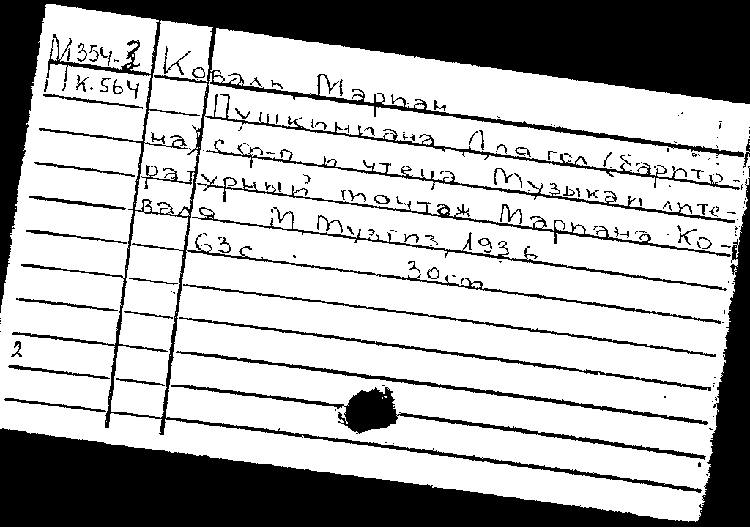 М 354-3
П к.564
Коваль, Мариан
Пушкиниана. Для гол (барито-
на) с ф-п и чтеца Музыкал лите-
ратурный монтаж Мариана Ко-
валя М Музгиз, 1936
63с. 30cm
2